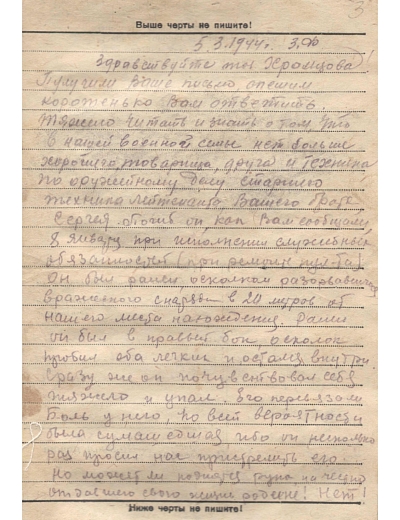 3
Выше черты не пишите!
5.3.1944г. З.Ф
Здравствуйте тов Храмцова!
Получили Ваше письмо спешим
коротенько Вам ответить
тяжело читать и знать о том, что
в нашей военной семье нет больше
хорошего товарища, друга и техника
по оружейному делу старшего
техника лейтенанта Вашего
Сергея. Погиб он, как Вам сообщили,
8 января при исполнении служебных
обязанностей (при ремонте пул-та)
Он был ранен осколком разорвавшегося
вражеского снаряда в 20 метров от
нашего места нахождения. Ранен
он был в правый бок, осколок
пробил оба легких и остался внутри
сразу же он почувствовал себя
тяжело и упал. Его перевязали
Боль у него по всей вероятности
была сумашедшая ибо он несколько
раз просил нас пристрелить его.
Но может ли поднятся рука на честно
отдавшего свою жизнь Нет!
Ниже черты не пишите!